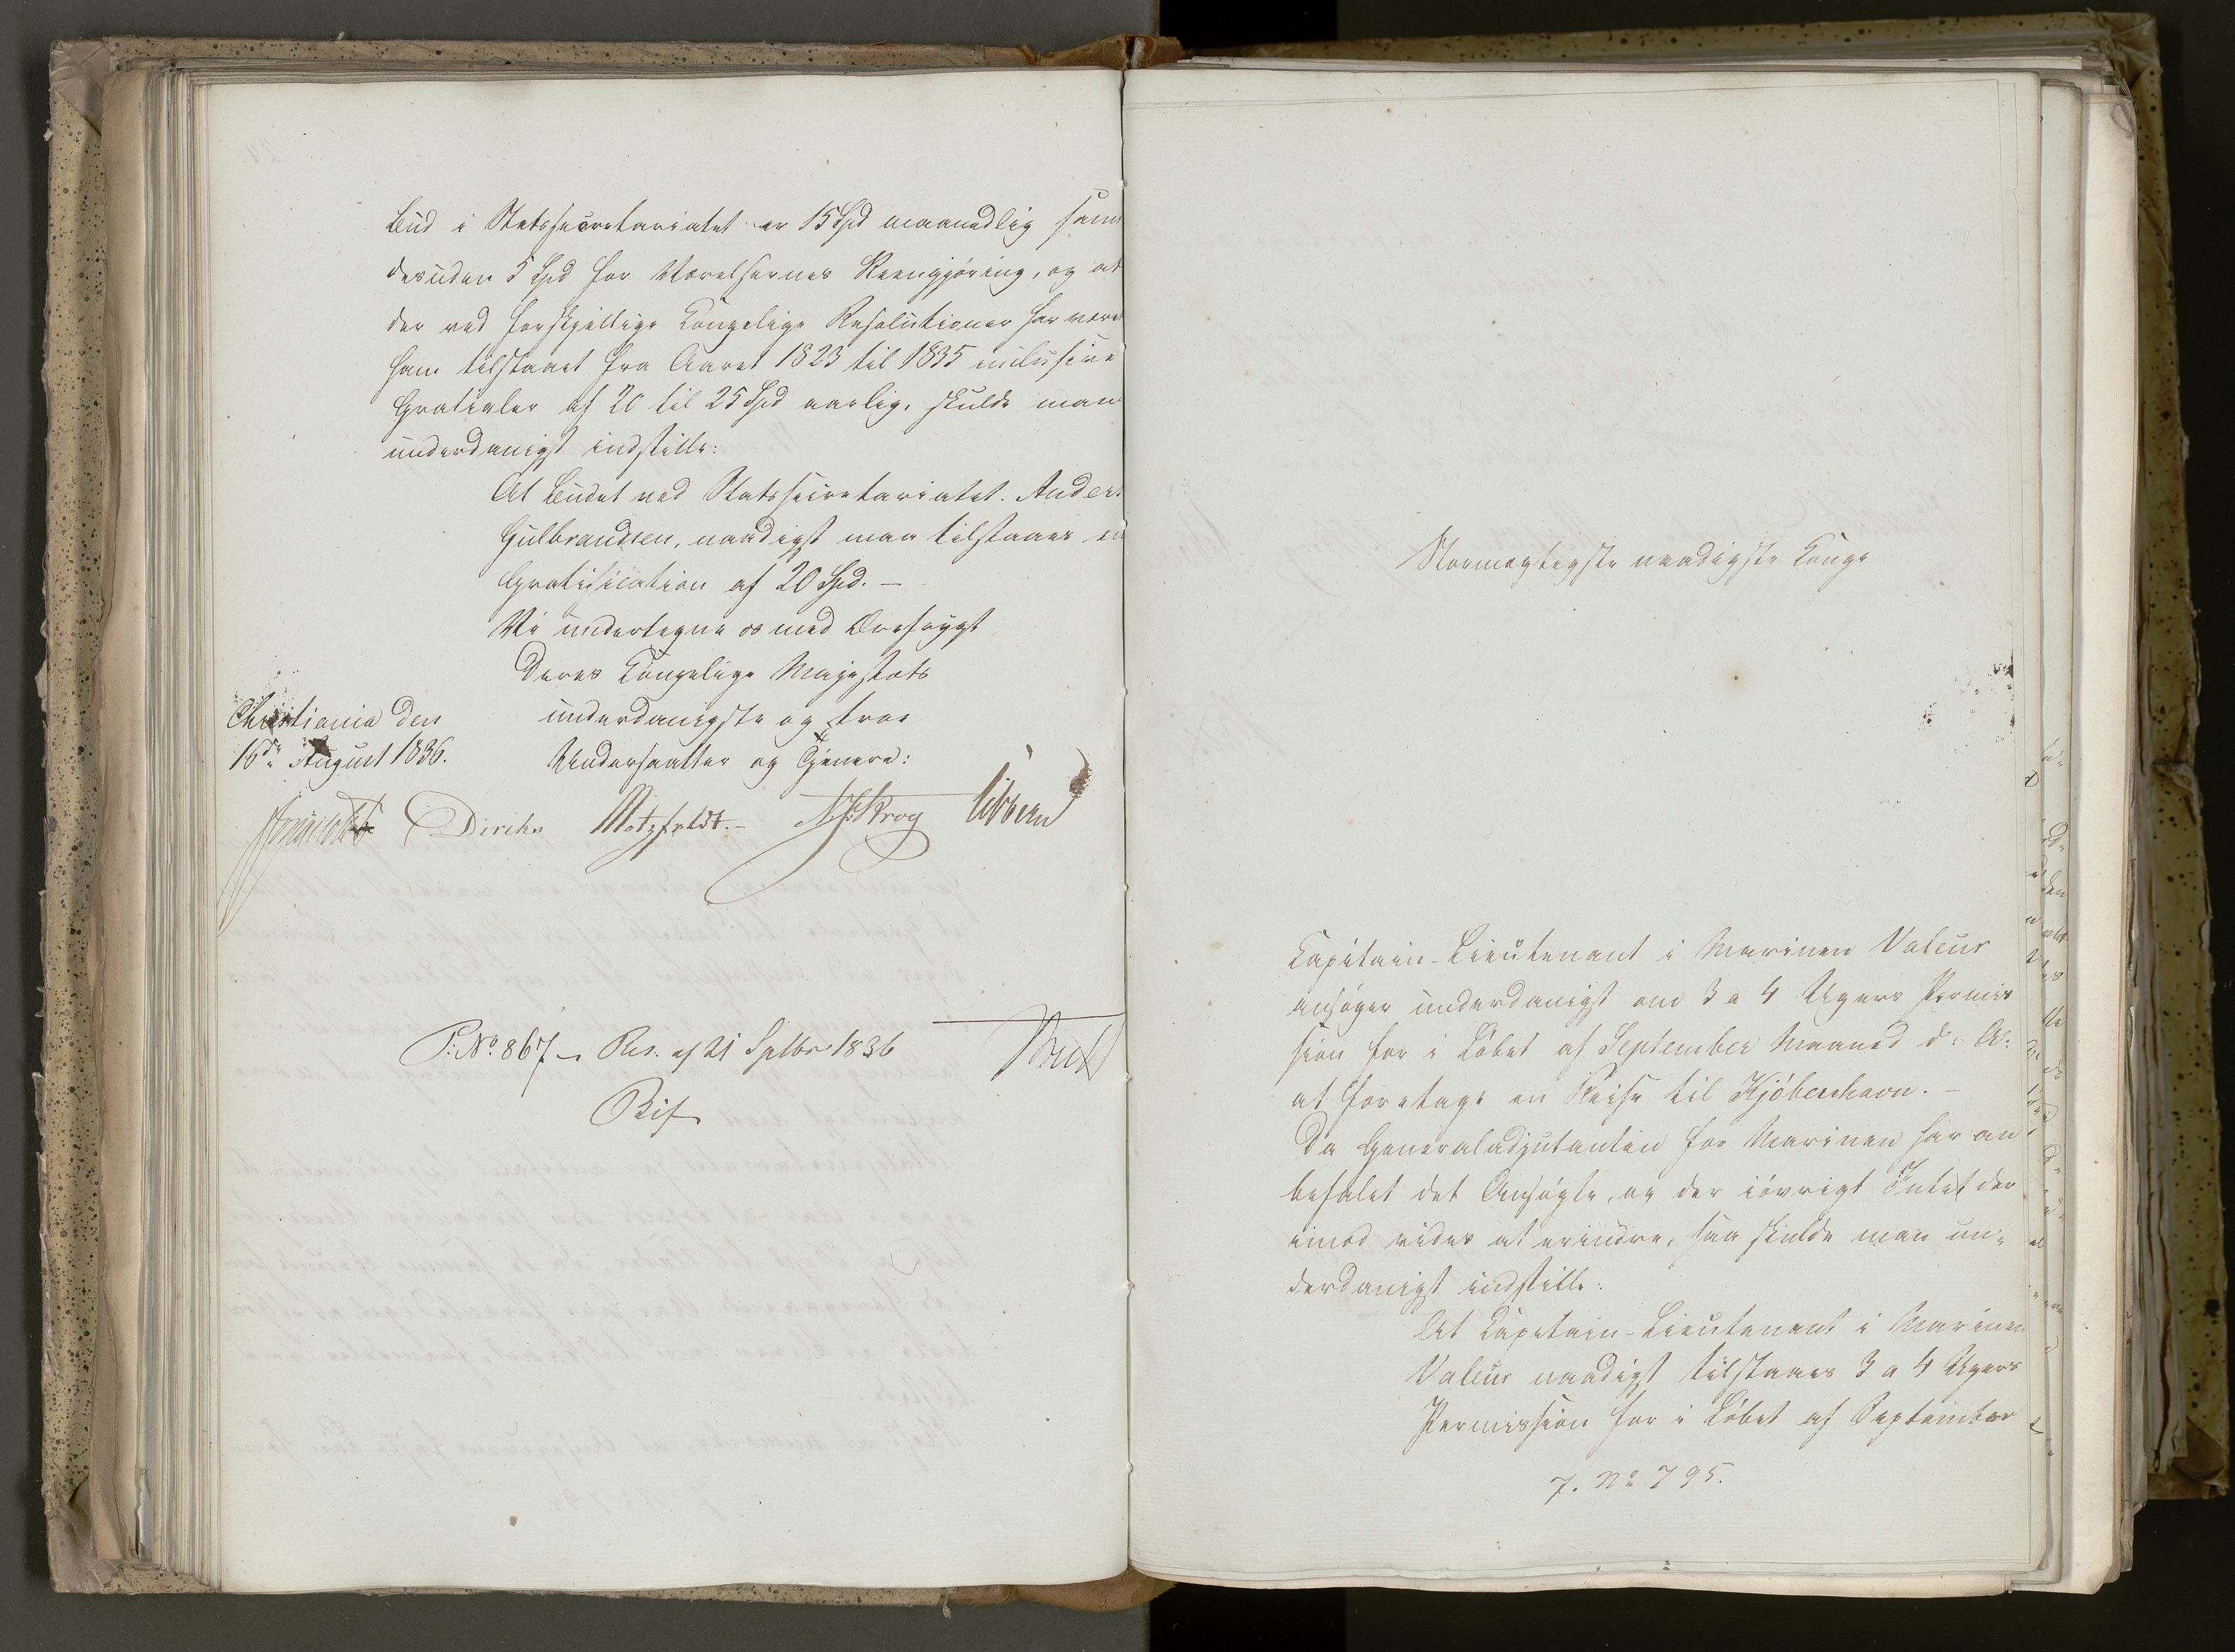 Bud i Statssecretariatet er 15 Spd maanedlig samt
desuden 5 Spd for Værelsernes Reengjøring, og at
der ved forskjellige Kongelige Resolutioner har været
ham tilstaaet fra Aaret 1823 til 1835 inclusive
Gratialer af 20 til 25 Spd aarlig, skulde man
underdanigst indstille:
At Budet ved Statssecretariatet, Anders
Gulbrandsen, naadigst maa tilstaaes en
Gratification af 20 Spd. —
Vi undertegne os med Ærefrygt
Deres Kongelige Majestæts
Christiania den
16de August 1836.
underdanigste og troe
Undersaatter og Tjenere:
Diriks Motzfeldt. — Krog Vibern
P: No. 867 — Res. af 21 Septbr 1836
Stormægtigste naadigste Konge
Capitain-Lieutenant i Marinen Valeur
ansøger underdanigst om 3 a 4 Ugers Permis
sion for i Løbet af September Maaned d: A:
at foretage en Reise til Kjøbenhavn. —
Da Generaladjutanten for Marinen har an
befalet det Ansøgte, og der iøvrigt Intet der
imod vides at erindre, saa skulde man un:
derdanigst indstille:
At Capitain-Lieutenant i Marinen
Valeur naadigst tilstaaes 3 a 4 Ugers
Permission for i Løbet af September
7. No 795.